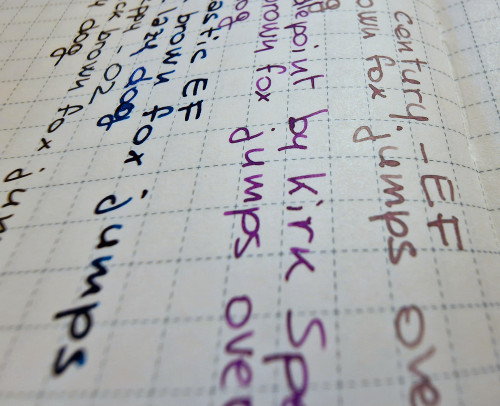 century - EF
own fox jumps ove
og
depoint by Kirk Spe
rown fox jumps over
og
astic EF
brown fox jumps
lazy dog
ppy - 02
ck brown fox jum
y dog